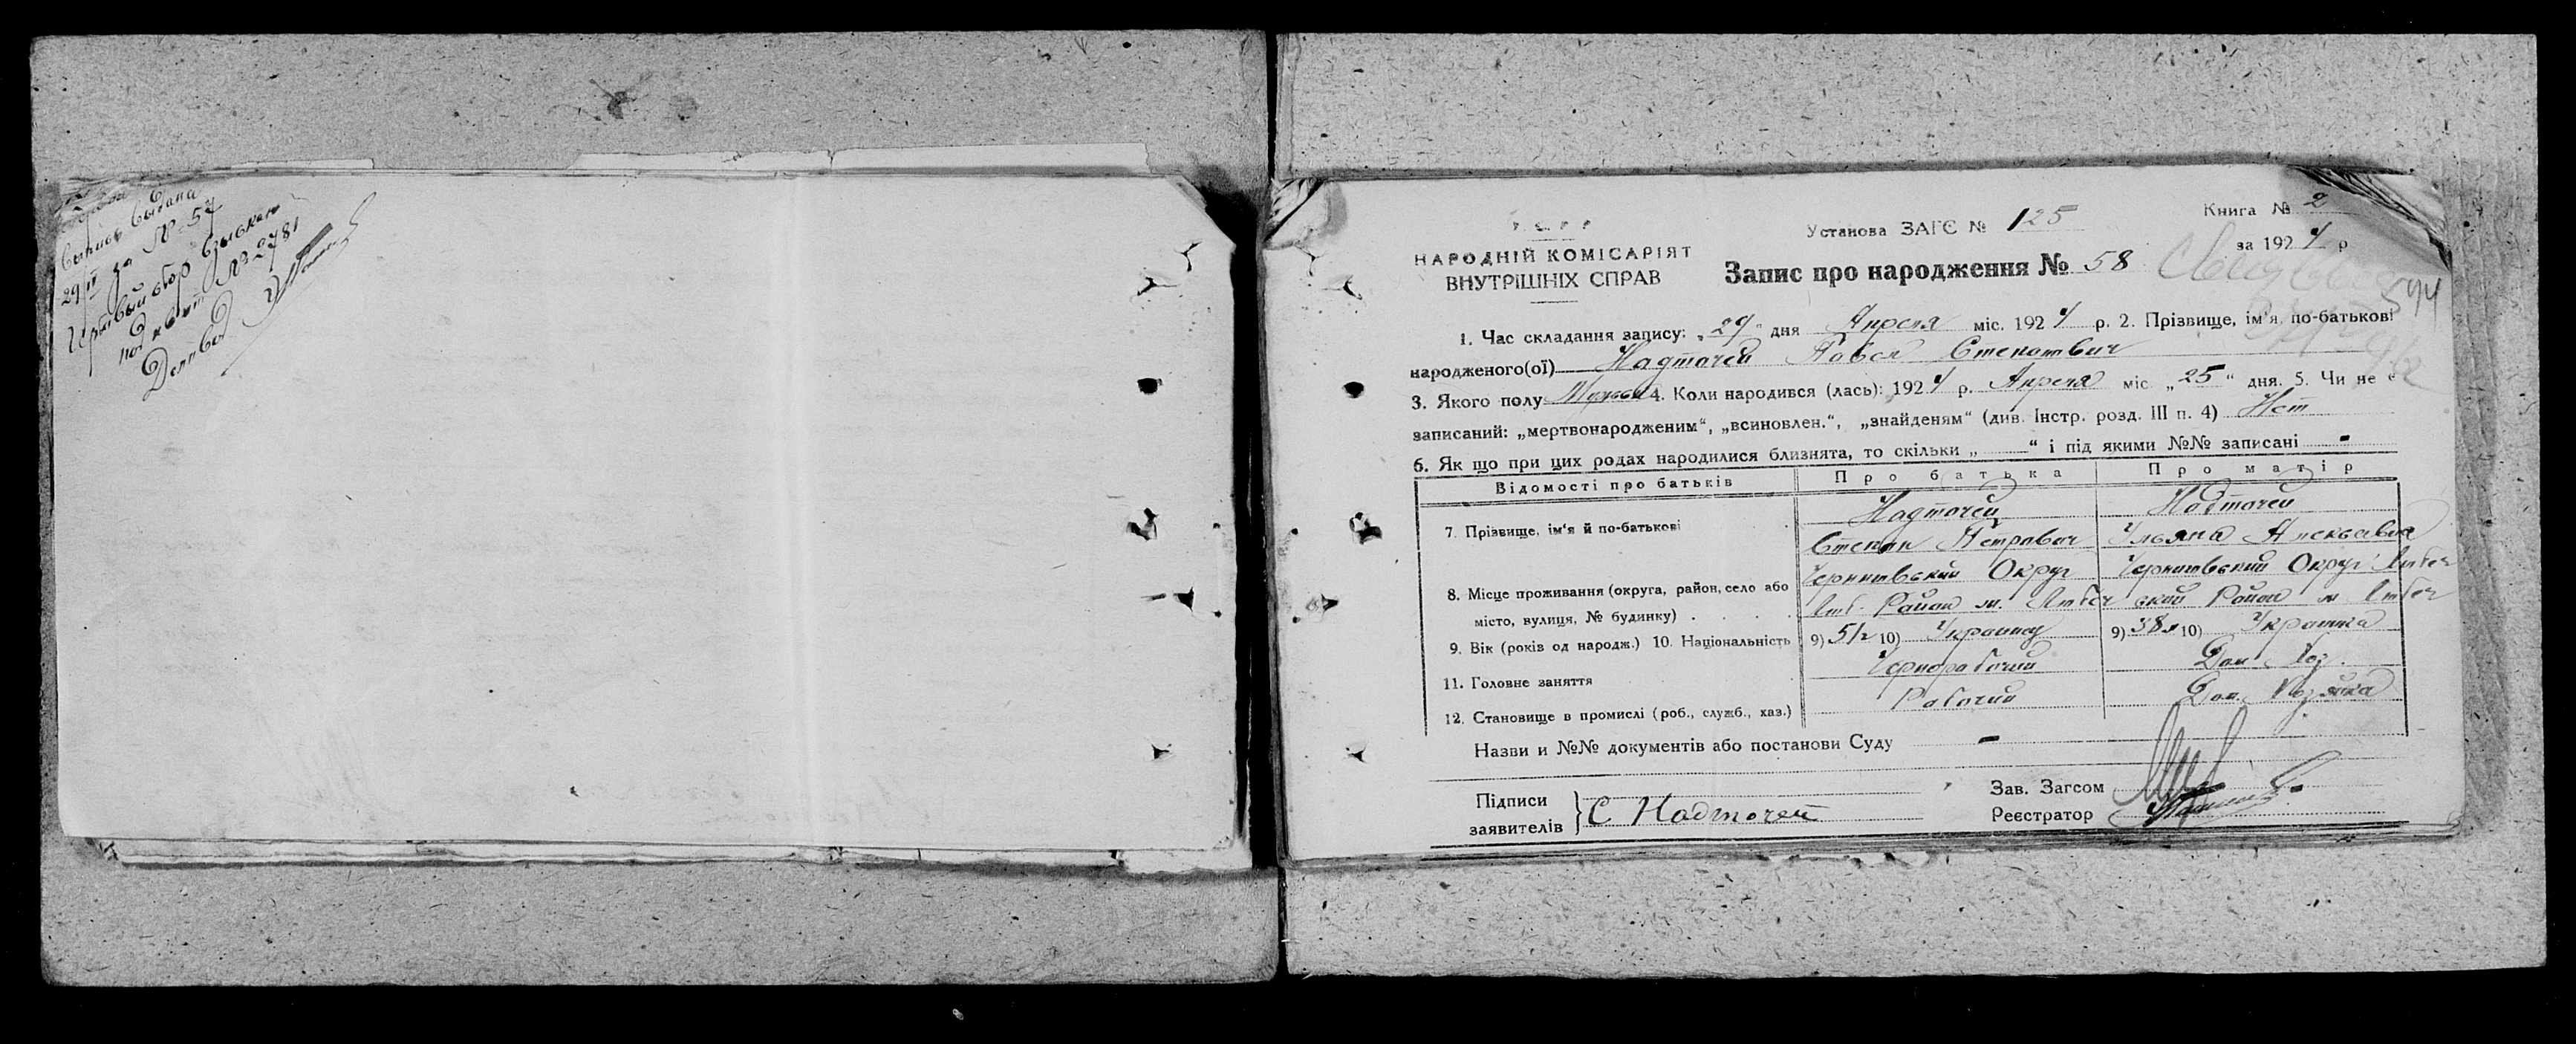 Выпись выдана
29/IV за № 57
Гербовый сбор взыскан
по квит № 2781
У.С.Р.Р.
НАРОДНІЙ КОМІСАРІЯТ
ВНУТРІШНІХ СПРАВ
Установа ЗАГС № 125
Книга № 2
за 1924 р
Запис про народження № 58
1. Час складання запису: „29“ дня Апреля міс. 1924 р. 2. Прізвище, ім'я, по-батькові
народженого(ої) Надточей Павел Степанович
3. Якого полу Мужской 4. Коли народився (лась): 1924 р. Апреля міс „25“ дня. 5. Чи не є
записаний: „мертвонародженим“, „всиновлен.“, „знайденям“ (див. Інстр. розд. III п. 4) Нет
6. Як що при цих родах народилися близнята, то скільки „ “ і під якими №№ записані -
Відомості про батьків Про батька Про матір
7. Прізвище, ім'я й по-батькові Надточей Надточей
Степан Петрович Ульяна Алексевна
8. Місце проживання (округа, район, село або Черниговский Округ Черниговский Округ Любеч
місто, вулиця, № будинку) Люб. Район м. Любеч ский Район м Любеч
9. Вік (років од народж.) 10. Національність 9) 51л 10) Украинец 9) 38л 10) Украинка
11. Головне заняття Чернорабочий Дом. Хоз.
12. Становище в промислі (роб., служб., хаз.) Рабочий Дом. Хозяйка
Назви и №№ документів або постанови Суду -
Підписи
заявителів } С Надточей
Зав. Загсом
Реєстратор